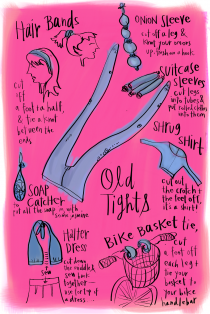 Hair Bands
cut
off
a foot & a half,
& tie a knot
between the
ends
ONION SLEEVE
cut off a leg &
knot your onions
up.
Suitcase
sleeves
cut legs
into tubes &
put rolled clothes
into them
SHRUG
SHIRT
cut out
the crotch &
the feet off,
it's a shirt!
SOAP
CATCHER
put all the
soap in
Old
Tights
HALTER
DRESS
cut down
the middle,
sew back
together
a dress
sew
BIKE BASKET tie,
cut
a foot off
each leg &
tie your
basket to
your bike
handlebar